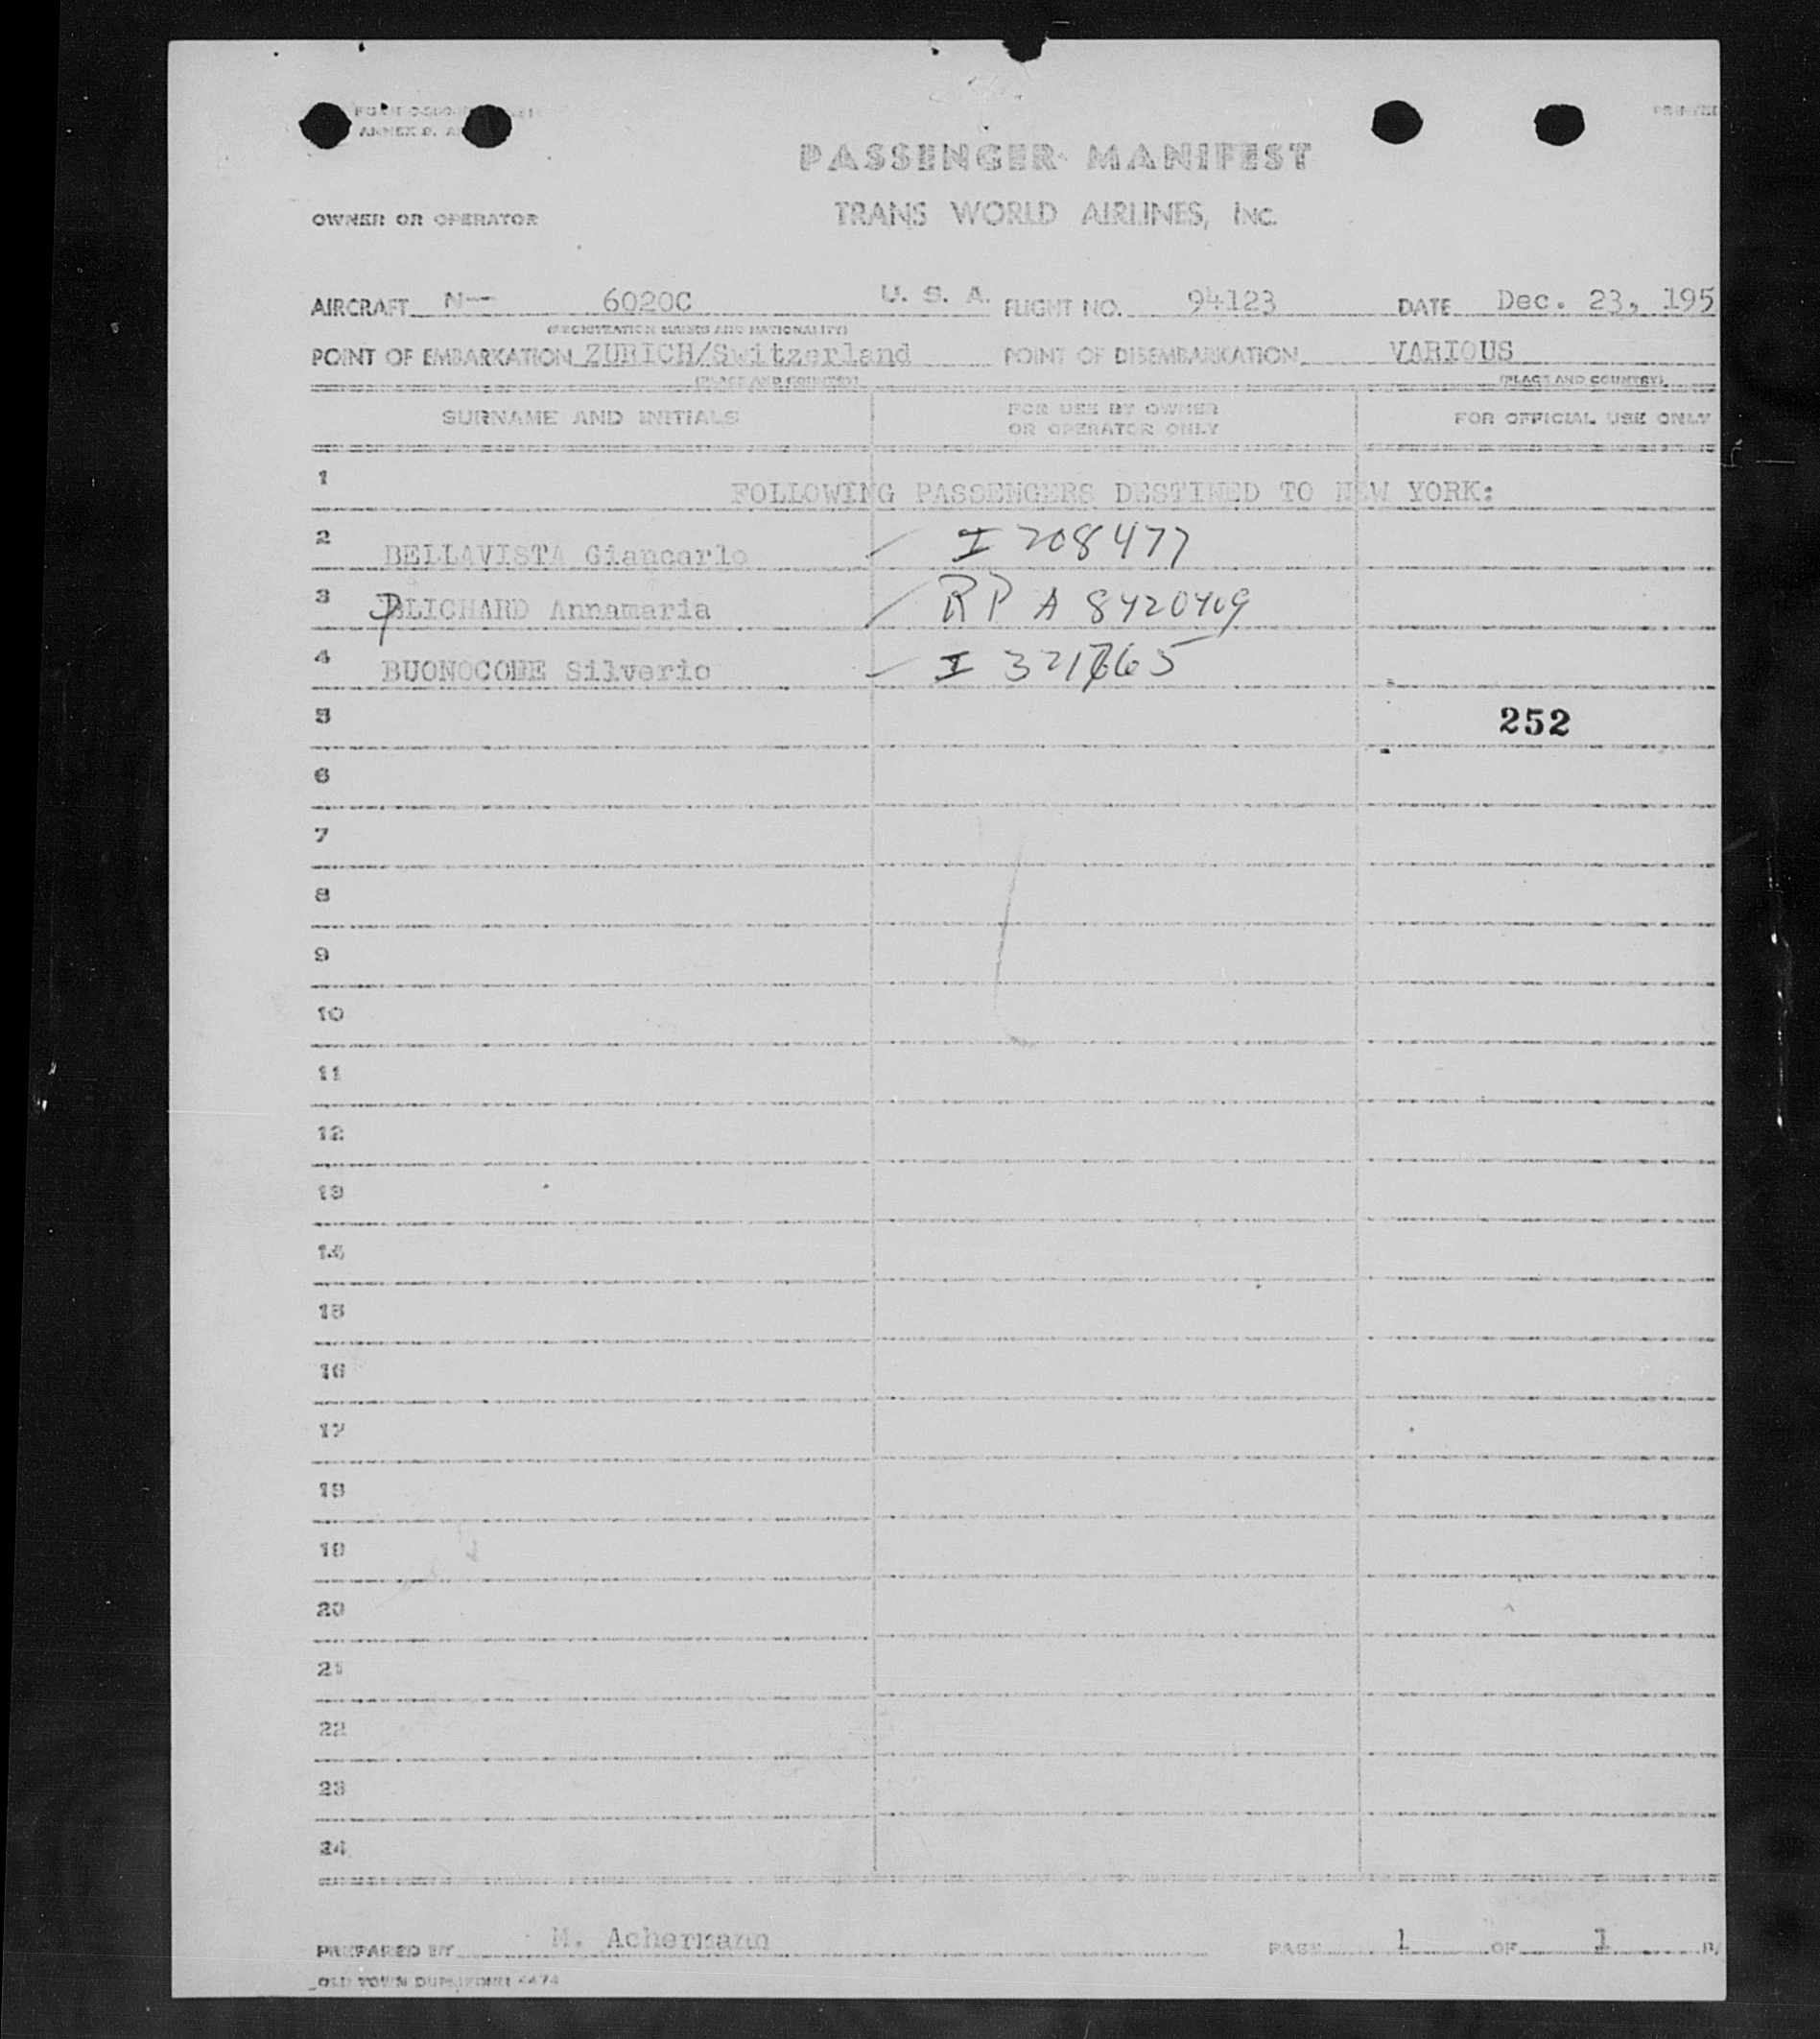 ANNEX 9, A
PASSENGER MANIFEST
OWNER OR OPERATOR TRANS WORLD AIRLINES, Inc.
AIRCRAFT N-- 6020C U. S. A. FLIGHT NO. 94123 DATE Dec. 23, 195
(REGISTRATION MARKS AND NATIONALITY)
POINT OF EMBARKATION ZURICH/Switzerland POINT OF DISEMBARKATION VARIOUS
(PLACE AND COUNTRY) (PLACE AND COUNTRY)
SURNAME AND INITIALS FOR USE BY OWNER OR OPERATOR ONLY FOR OFFICIAL USE ONLY
1 FOLLOWING PASSENGERS DESTINED TO NEW YORK:
2 BELLAVISTA Giancarlo I 208477
3 PLICHARD Annamaria RP A 8420409
4 BUONOCORE Silverio I 321765
5 252
6
7
8
9
10
11
12
13
14
15
16
17
18
19
20
21
22
23
24
PREPARED BY M. Achermann PAGE 1 OF 1
OLD TOWN